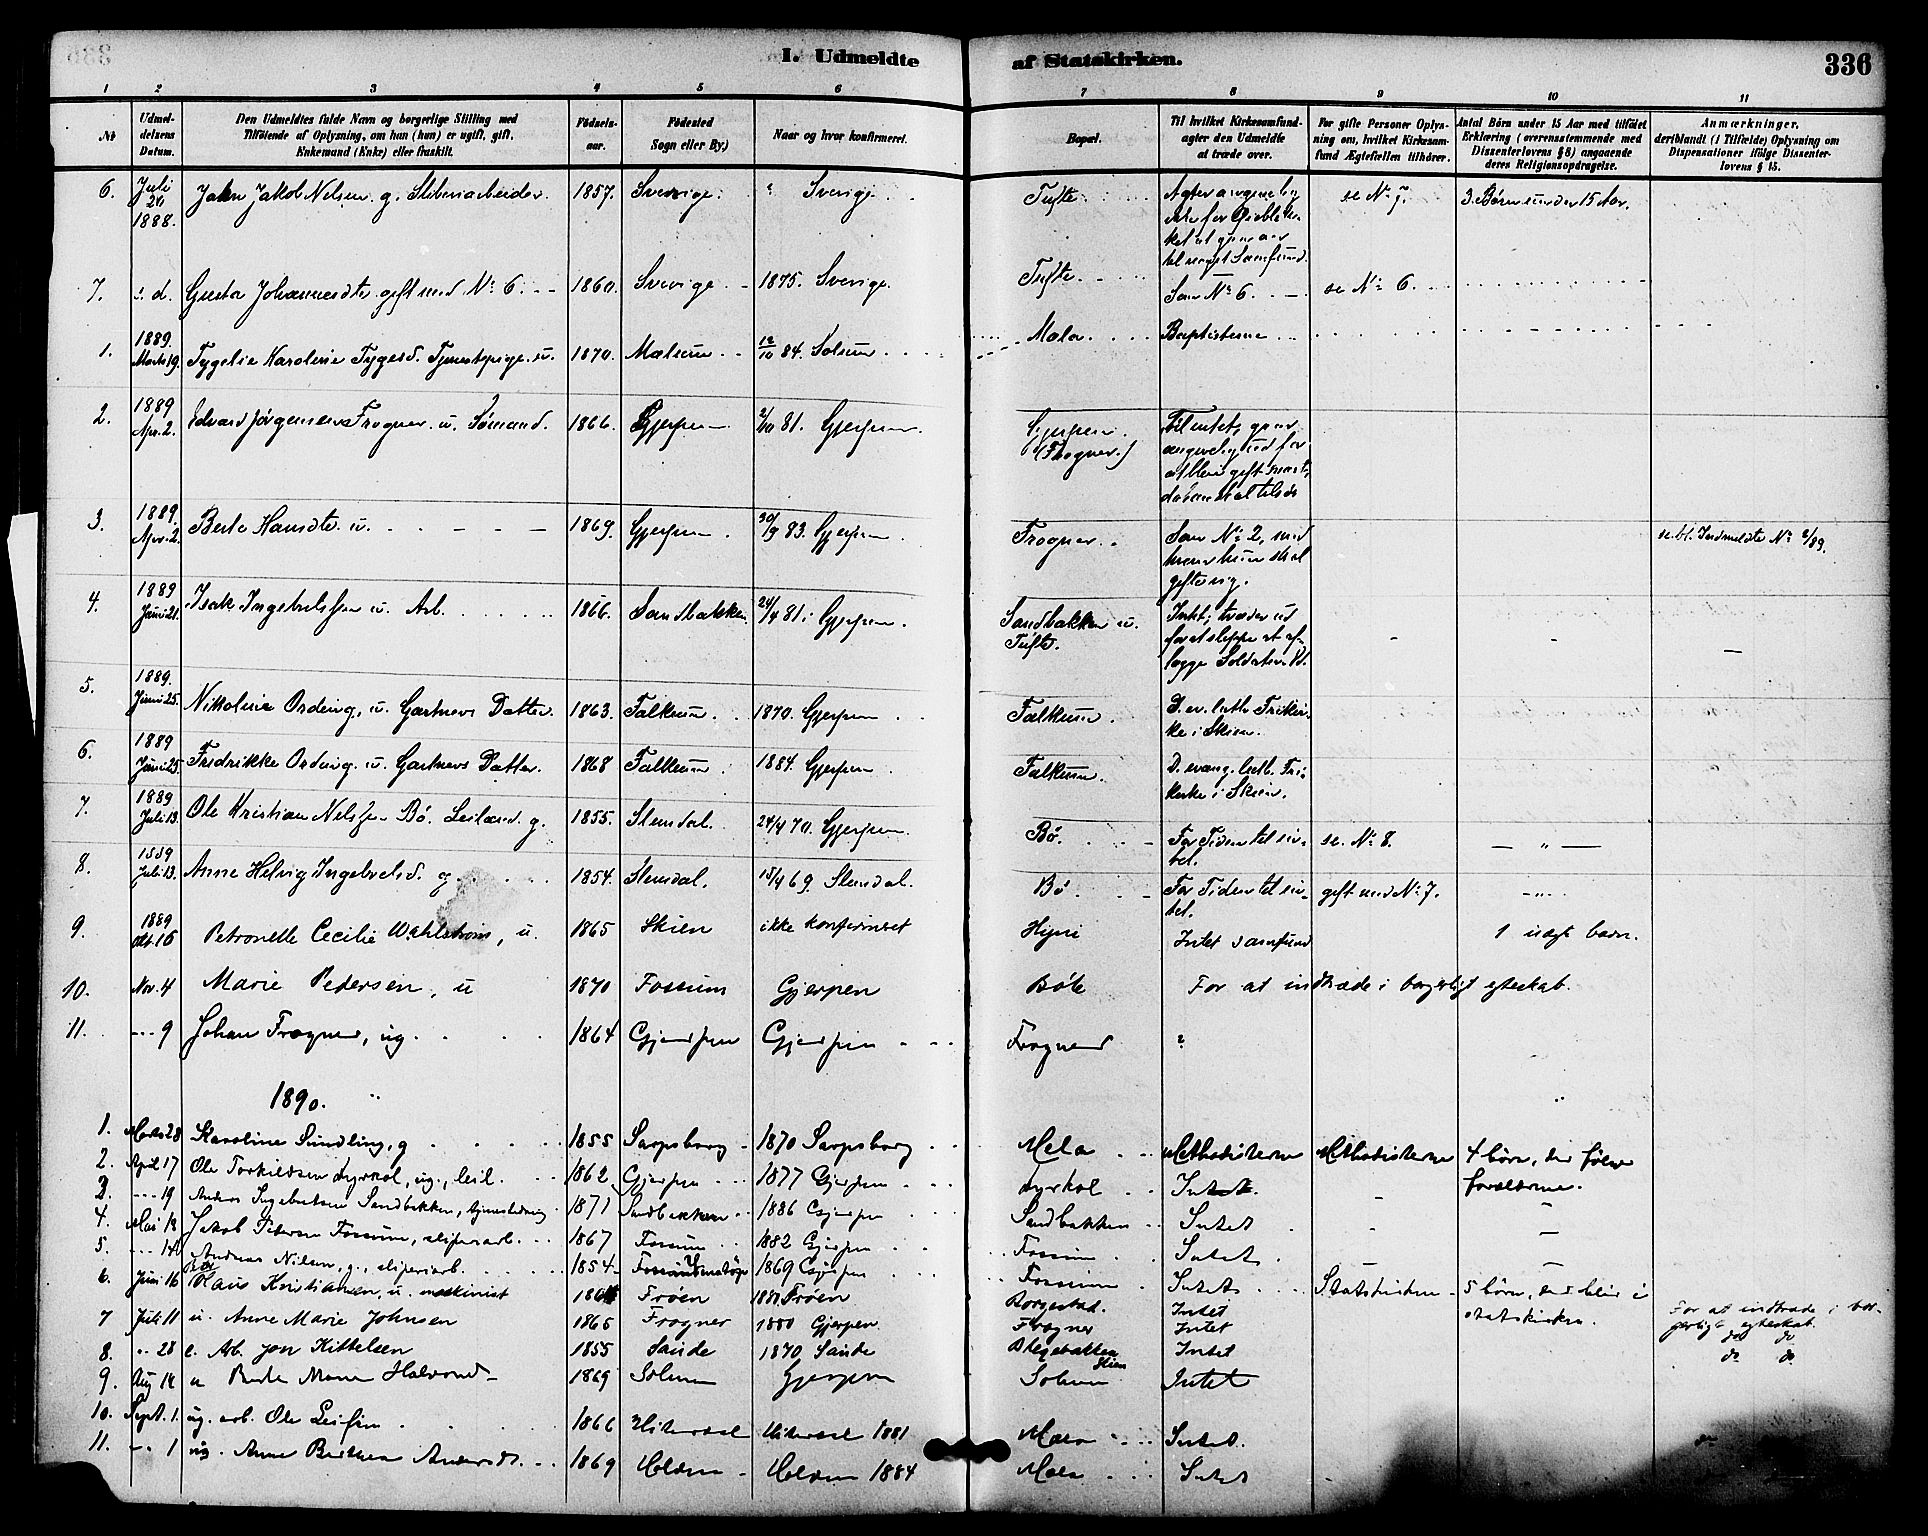 I. Udmeldte af Statskirken. 336
1 2 3 4 5 6 7 8 9 10 11
Nr.
Udmel-
delsens
Datum.
Den Udmeldtes fulde Navn og borgerlige Stilling med
Tilføiende af Oplysning, om han (hun) er ugift, gift,
Enkemand (Enke) eller fraskilt.
Fødsels-
aar.
Fødested
Sogn eller By.)
Naar og hvor konfirmeret.
Bopæl.
Til hvilket Kirkesamfund
agter den Udmeldte
at træde over.
For gifte Personer Oplys-
ning om, hvilket Kirkesam-
fund Ægtefællen tilhører.
Antal Børn under 15 Aar med tilføiet
Erklæring (overensstemmende med
Dissenterlovens § 8) angaaende
deres Religionsopdragelse.
Anmærkninger,
deriblandt (i Tilfælde) Oplysning om
Dispensationer ifølge Dissenter-
lovens § 15.
6. Juli 1888. Jakob Nilsen g. Sliberiarbeider. 1857. Sverige. ? Sverige. Tufte se No 7. 3 Børn under 15 Aar.
7. s. d. gift med No 6. 1860. Sverige 1875. Sverige. Tufte. Som No 6. se No 6.
1. 1889. Marts 19. Tygelie Karoline Tygesd. Tjenestepige. u. 1870. Melum 12/10 84. Solum Mela. Baptisterne
2. 1889 Apr. 2. Edvard Jørgensen Frogner. u. Sømand. 1866. Gjerpen 2/10 81. Gjerpen. Gjerpen. (Frogner.)
3. 1889. Apr. 2. Berte Hansdtr. u. 1869. Gjerpen. 30/9 83. Gjerpen. Frogner. Som No 2, med hvem hun skal gifte sig. se bl. Indmeldte No 2/89.
4. 1889 Juni 21. Isak Ingebretsen u. Arb. 1866. Sandbakken. 24/4 81. Gjerpen. Sandbakken u. Tufte. Intet; træder ud for at slippe at aflægge Soldatered.
5. 1889. Juni 25. Nikoline Ording, u. Gartners Datter. 1863. Falkum 1870. Gjerpen Falkum. D. ev. luth. Frikirke i Skien.
6. 1889 Juni 25. Fredrikke Ording. u. Gartners Datter. 1868 Falkum 1884. Gjerpen. Falkum. D. evang. luth. Frikirke i Skien.
7. 1889 Juli 13. Ole Kristian Nilsen Bø. Leilænd. g. 1855. Stensdal. 24/4 70. Gjerpen. Bø. For Tiden til intet. se. No 8. "
8. 1889 Juli 13. Anne Helvig Ingebretsd. g. 1854. Stensdal. 15/4 69. Stensdal. Bø For Tiden til intet. gift med No 7. "
9. 1889 okt. 16 Petronelle Cecilie Wahlstrøm, u. 1865 Skien ikke konfirmeret Hyni Intet samfund 1 uægt barn.
10. Nov. 4 Marie Pedersen, u 1870 Fossum Gjerpen Bøle For at indtræde i borgerligt egteskab.
11. 9 Johan Frogner, ug. 1864 Gjerpen Gjerpen Frogner ?
1890.
1. Marts 28 Karoline Sundling, g 1855 Sarpsborg 1870 Sarpsborg Mela Methodisterne Methodisterne 4 børn, der følger forældrene.
2. April 17 Ole Torkildsen Lyrkol, ug., leil. 1862 Gjerpen 1877 Gjerpen Lyrkol Intet.
3. 19 Anders Ingebretsen Sandbakken, 1871 Sandbakken 1886 Gjerpen Sandbakken Intet
4. Mai 13 Jakob Petersen Fossum, sliperiarb. 1867 Fossum 1882 Gjerpen Fossum Intet
5. 14 Andreas Nilsen, g., sliperiarb. 1854 1869 Gjerpen Fossum Intet Statskirken 5 børn, der blir i statskirken.
6. Juni 16 Olaus Kristiansen, u. maskinist Frøen Frøen Borgestad. Intet
7 Juli 11 u. Anne Marie Johnsen 1865 Frogner 1880 Gjerpen. Frogner Intet For at indtræde i borgerligt egteskab.
8. " 28 e. Arb. Jon Kittelsen 1855 Sande 1870 Sande Skien Intet do do
9. Aug 14 u Halvorsd. 1869 Solum Gjerpen Solum Intet do do
10. Sept. 1. ug. arb. Ole 1866 Hiterdal Hiterdal 1881 Mela Intet.
11. 1 ug. Anne Andersd. 1869 Holden Holden 1884 Mela Intet